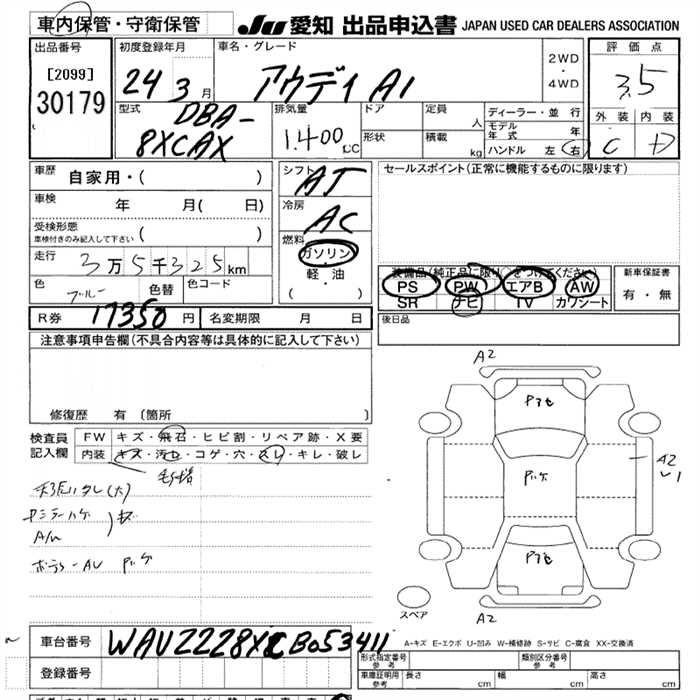 車内保管・守衛保管
JU 愛知 出品申込書 JAPAN USED CAR DEALERS ASSOCIATION
出品番号
[2099]
30179
初度登録年月
24 3月
車名・グレード
アウディ A1
2WD
・
4WD
評価点
3.5
外装 内装
C D
型式
DBA-
8XCAX
排気量
1.400cc
ドア
形状
定員 人
積載 kg
ディーラー・並行
モデル年式 年
ハンドル 左 右
車歴
自家用・( )
車検
年 月( 日)
受検形態
車検付きのみ記入して下さい ( )
走行
3万5千325km
色
ブルー
色替
色コード
シフト
AT
冷房
AC
燃料
ガソリン
・
軽・油
( )
セールスポイント(正常に機能するものに限ります)
装備品(純正品に限り○をつけてください)
PS PW エアB AW
SR ナビ TV カワシート
新車保証書
有・無
R券 17350円 名変期限 月 日
後日品
注意事項申告欄(不具合内容等は具体的に記入して下さい)
修復歴 有 〔箇所 〕
検査員
記入欄
FW キズ・飛石・ヒビ割・リペア跡・X要
内装 キズ・汚れ・コゲ・穴・スレ・キレ・破レ
A/M
A2
A2
A2
スペア
A-キズ E-エクボ U-凹み W-補修跡 S-サビ C-腐食 XX-交換済
車台番号 WAUZZZ8X8CB053411
登録番号
形式指定番号
参考
類別区分番号
参考
車庫証明用
参考
長さ cm 幅 cm 高さ cm